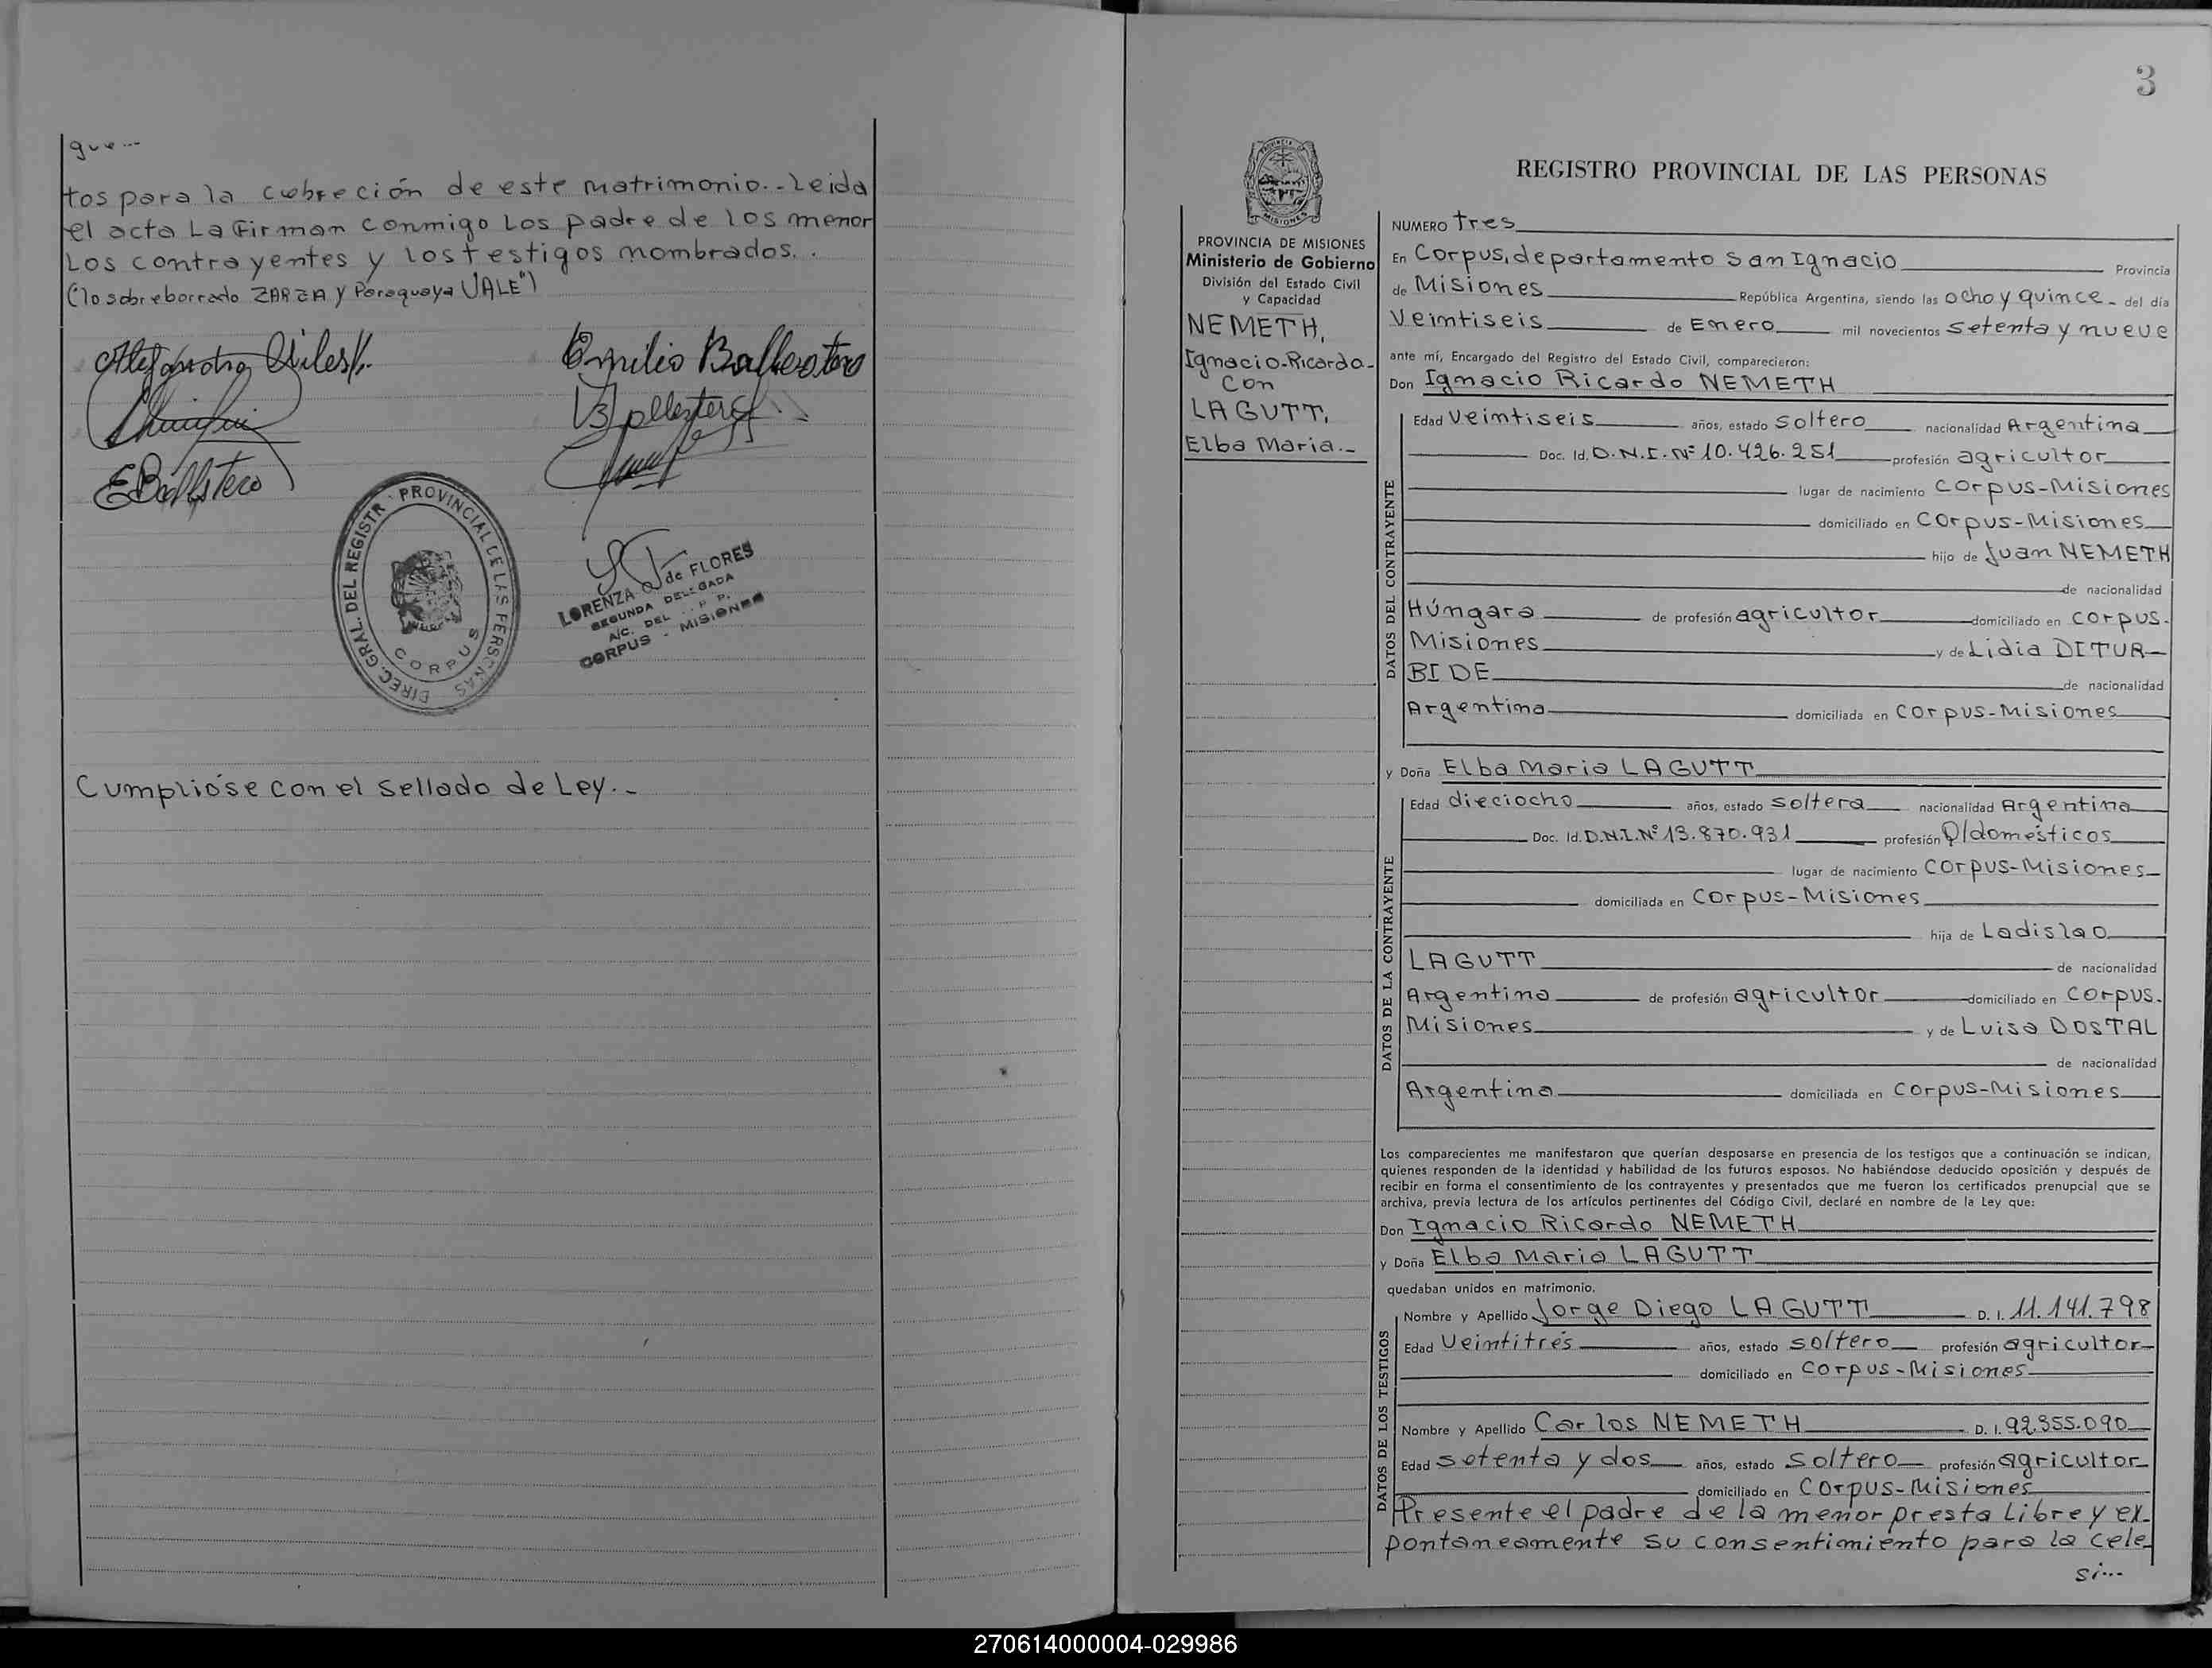 gue...
tos para la cebreción de este matrimonio.-Leida
el acta La firman conmigo Los padre de los menor
Los contrayentes y los testigos nombrados..
("lo sobreborrado ZARZA y Paraguaya VALE")
Emilio Ballestero
EBallstero
DIREC. GRAL. DEL REGISTR PROVINCIAL DE LAS PERSONAS
CORPUS
LORENZA de FLORES
SEGUNDA DELEGADA
A/C. DEL R. P. P.
CORPUS - MISIONES
Cumplióse con el sellado de Ley.-
3
PROVINCIA DE MISIONES
Ministerio de Gobierno
División del Estado Civil
y Capacidad
NEMETH,
Ignacio-Ricardo-
Con
LAGUTT,
Elba Maria.-
REGISTRO PROVINCIAL DE LAS PERSONAS
NUMERO Tres
En Corpus, departamento San Ignacio Provincia
de Misiones República Argentina, siendo las ocho y quince- del día
Veintiseis de Enero mil novecientos setenta y nueve
ante mí, Encargado del Registro del Estado Civil, comparecieron:
Don Ignacio Ricardo NEMETH
DATOS DEL CONTRAYENTE
Edad Veintiseis años, estado soltero nacionalidad Argentina
Doc. Id. D.N.I. Nº 10.426.251 profesión agricultor
lugar de nacimiento Corpus-Misiones
domiciliado en Corpus-Misiones
hijo de Juan NEMETH
de nacionalidad
Húngara de profesión agricultor domiciliado en Corpus-
Misiones y de Lidia DITUR-
BIDE de nacionalidad
Argentina domiciliada en Corpus-Misiones
y Doña Elba Maria LAGUTT
DATOS DE LA CONTRAYENTE
Edad dieciocho años, estado soltera nacionalidad Argentina
Doc. Id. D.N.I. Nº 13.870.931 profesión Q/domésticos
lugar de nacimiento Corpus-Misiones
domiciliada en Corpus-Misiones
hija de Ladislao
LAGUTT de nacionalidad
Argentina de profesión agricultor domiciliado en Corpus-
Misiones y de Luisa DOSTAL
de nacionalidad
Argentina domiciliada en Corpus-Misiones
Los comparecientes me manifestaron que querían desposarse en presencia de los testigos que a continuación se indican,
quienes responden de la identidad y habilidad de los futuros esposos. No habiéndose deducido oposición y después de
recibir en forma el consentimiento de los contrayentes y presentados que me fueron los certificados prenupcial que se
archiva, previa lectura de los artículos pertinentes del Código Civil, declaré en nombre de la Ley que:
Don Ignacio Ricardo NEMETH
y Doña Elba Maria LAGUTT
quedaban unidos en matrimonio.
DATOS DE LOS TESTIGOS
Nombre y Apellido Jorge Diego LAGUTT D. I. 11.141.798
Edad Veintitrés años, estado soltero profesión agricultor
domiciliado en Corpus-Misiones
Nombre y Apellido Carlos NEMETH D. I. 92.355.090
Edad setenta y dos años, estado soltero profesión agricultor
domiciliado en Corpus-Misiones
Presente el padre de la menor presta Libre y ex-
pontaneamente su consentimiento para la cele
si...
270614000004-029986